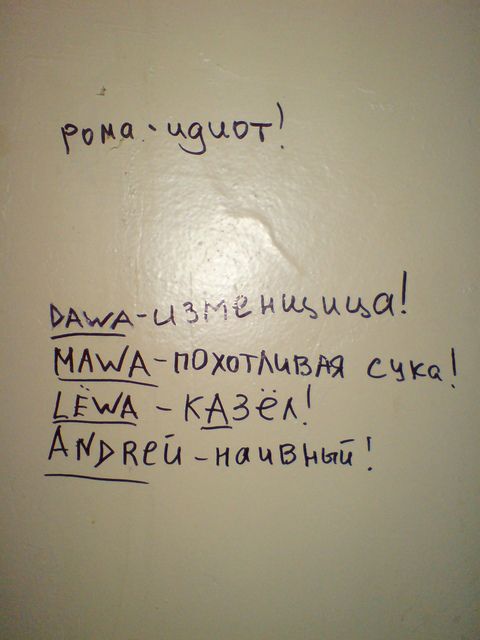 рома - идиот!
DAWA - изменщица!
MAWA - похотливая сука!
LЁWA - кАзёл!
ANDRей - наивный!